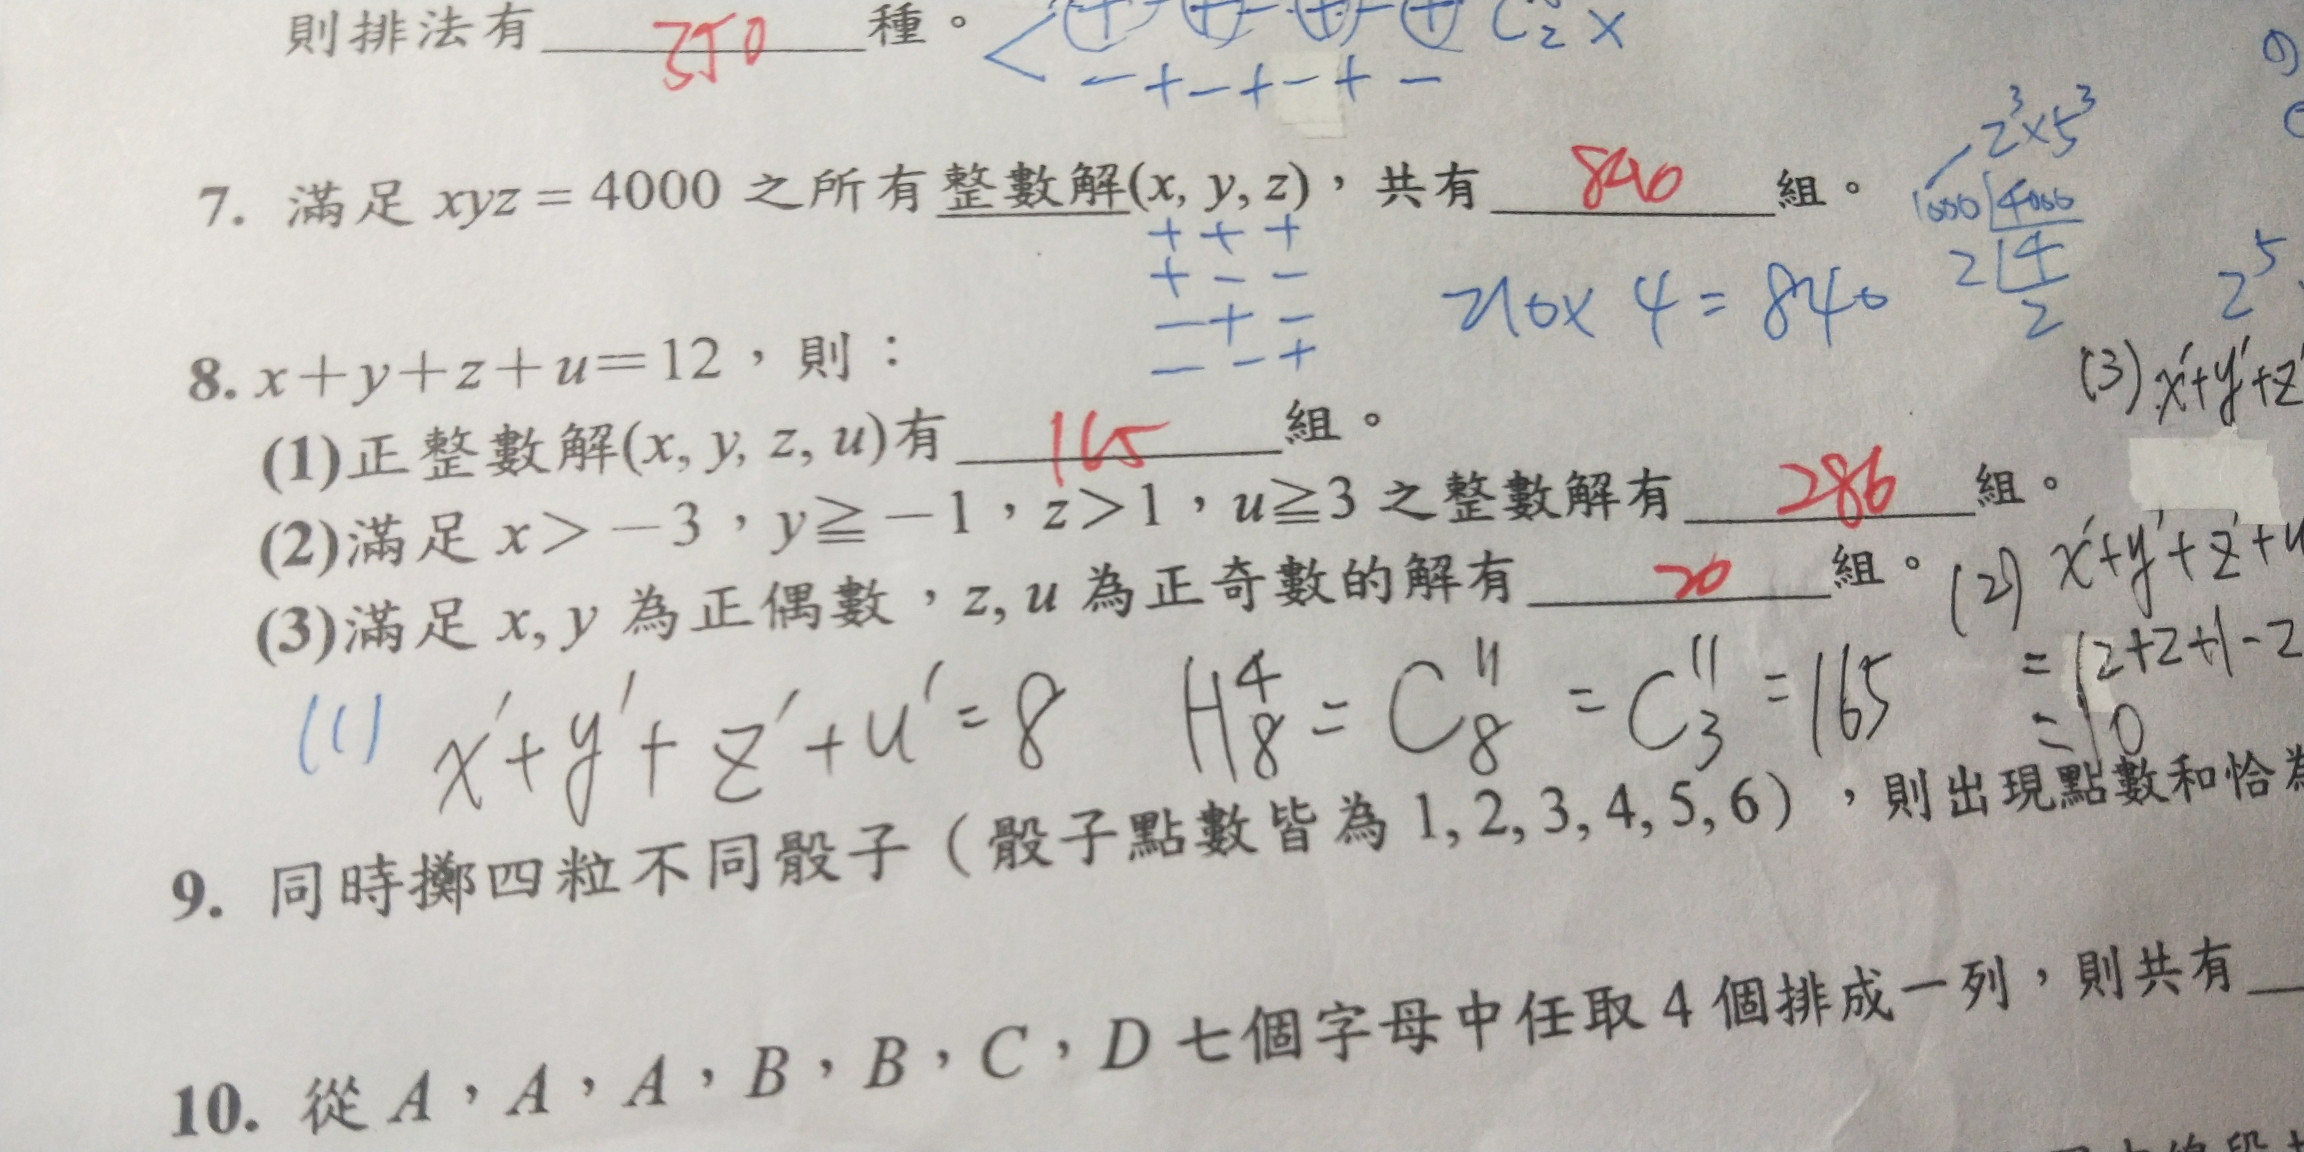 則排法有 350 種。
+ - + - + - +
- + - + - + -
C₂ x
2³×5³
7. 滿足 xyz = 4000 之所有整數解(x, y, z)，共有 840 組。
1000 4000
+ + +
+ - -
- + -
- - +
210 x 4 = 840
2 4
2
2⁵
8. x+y+z+u=12，則：
(1)正整數解(x, y, z, u)有 165 組。
(3) x'+y'+z'
(2)滿足 x＞－3，y≧－1，z＞1，u≧3 之整數解有 286 組。
(3)滿足 x, y 為正偶數，z, u 為正奇數的解有 20 組。
(2) x'+y'+z'+u
= 12+2+1-2
= 10
(1) x'+y'+z'+u'=8 H⁴₈ = C¹¹₈ = C¹¹₃ = 165
9. 同時擲四粒不同骰子（骰子點數皆為 1, 2, 3, 4, 5, 6），則出現點數和恰為
10. 從 A，A，A，B，B，C，D 七個字母中任取 4 個排成一列，則共有